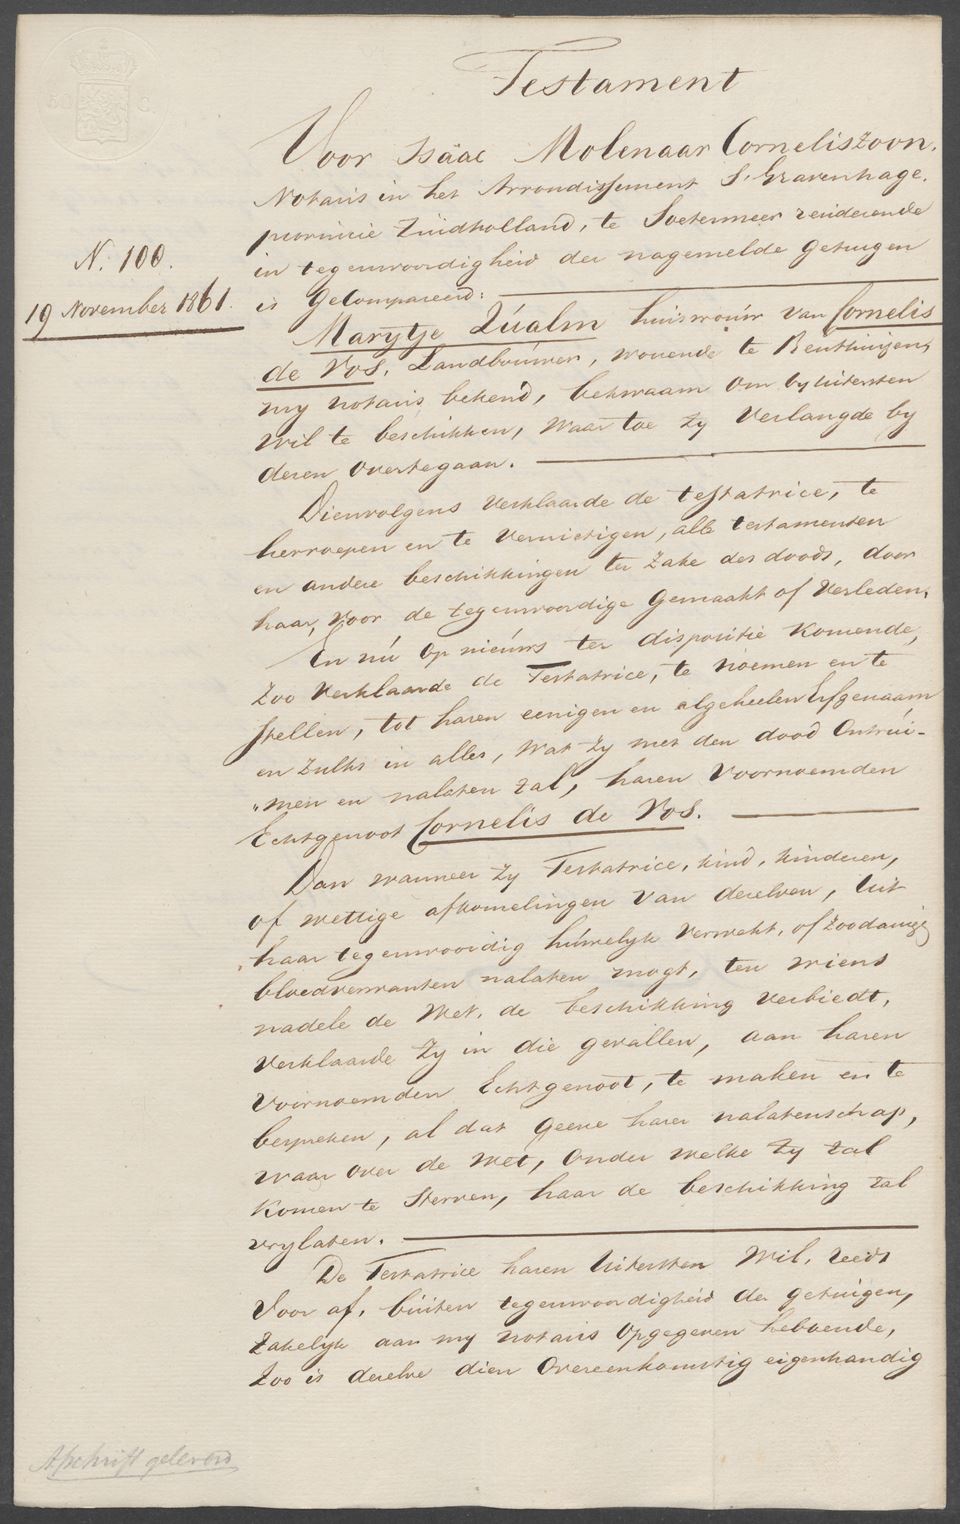 Testament
Voor Isäac Molenaar Corneliszoon.
Notaris in het Arrondissement S'Gravenhage.
provincie Zuidholland, te Soetermeer resideerende
in tegenwoordigheid der nagemelde getuigen
is gecompareerd:
N. 100.
19 November 1861.
Marytje Qúalm huisvroúw van Cornelis
de Vos. Landboúwer, wonende te Benthuizen,
my notaris bekend, bekwaam om by uitersten
wil te beschikken, waar toe zy verlangde by
dezen overtegaan.
Dienvolgens verklaarde de testatrice, te
herroepen en te vernietigen, alle testamenten
en andere beschikkingen ter zake des doods, door
haar, voor de tegenwoordige gemaakt of verleden,
En nú op nieúws ter dispositie komende,
zoo verklaarde de Testatrice, te noemen en te
stellen, tot haren eenigen en algeheelen Erfgenaam
en zulks in alles, wat zy met den dood ontrúi-
"men en nalaten zal, haren voornoemden
Echtgenoot Cornelis de Vos.
Dan wanneer zy Testatrice, kind, kinderen,
of wettige afkomelingen van dezelven, uit
haar tegenwoordig húwelyk verwekt, of zoodanige
bloedverwanten nalaten mogt, ten wiens
nadele de Wet, de beschikking verbiedt,
verklaarde zy in die gevallen, aan haren
voornoemden Echtgenoot, te maken en te
bespreken, al dat geene harer nalatenschap,
waar over de Wet, onder welke zy zal
komen te sterven, haar de beschikking zal
vrylaten.
De Testatrice haren Uitersten Wil, reeds
voor af, buiten tegenwoordigheid der getuigen,
zakelyk aan my notaris opgegeven hebbende,
zoo is dezelve dien overeenkomstig eigenhandig
Afschrift geleverd